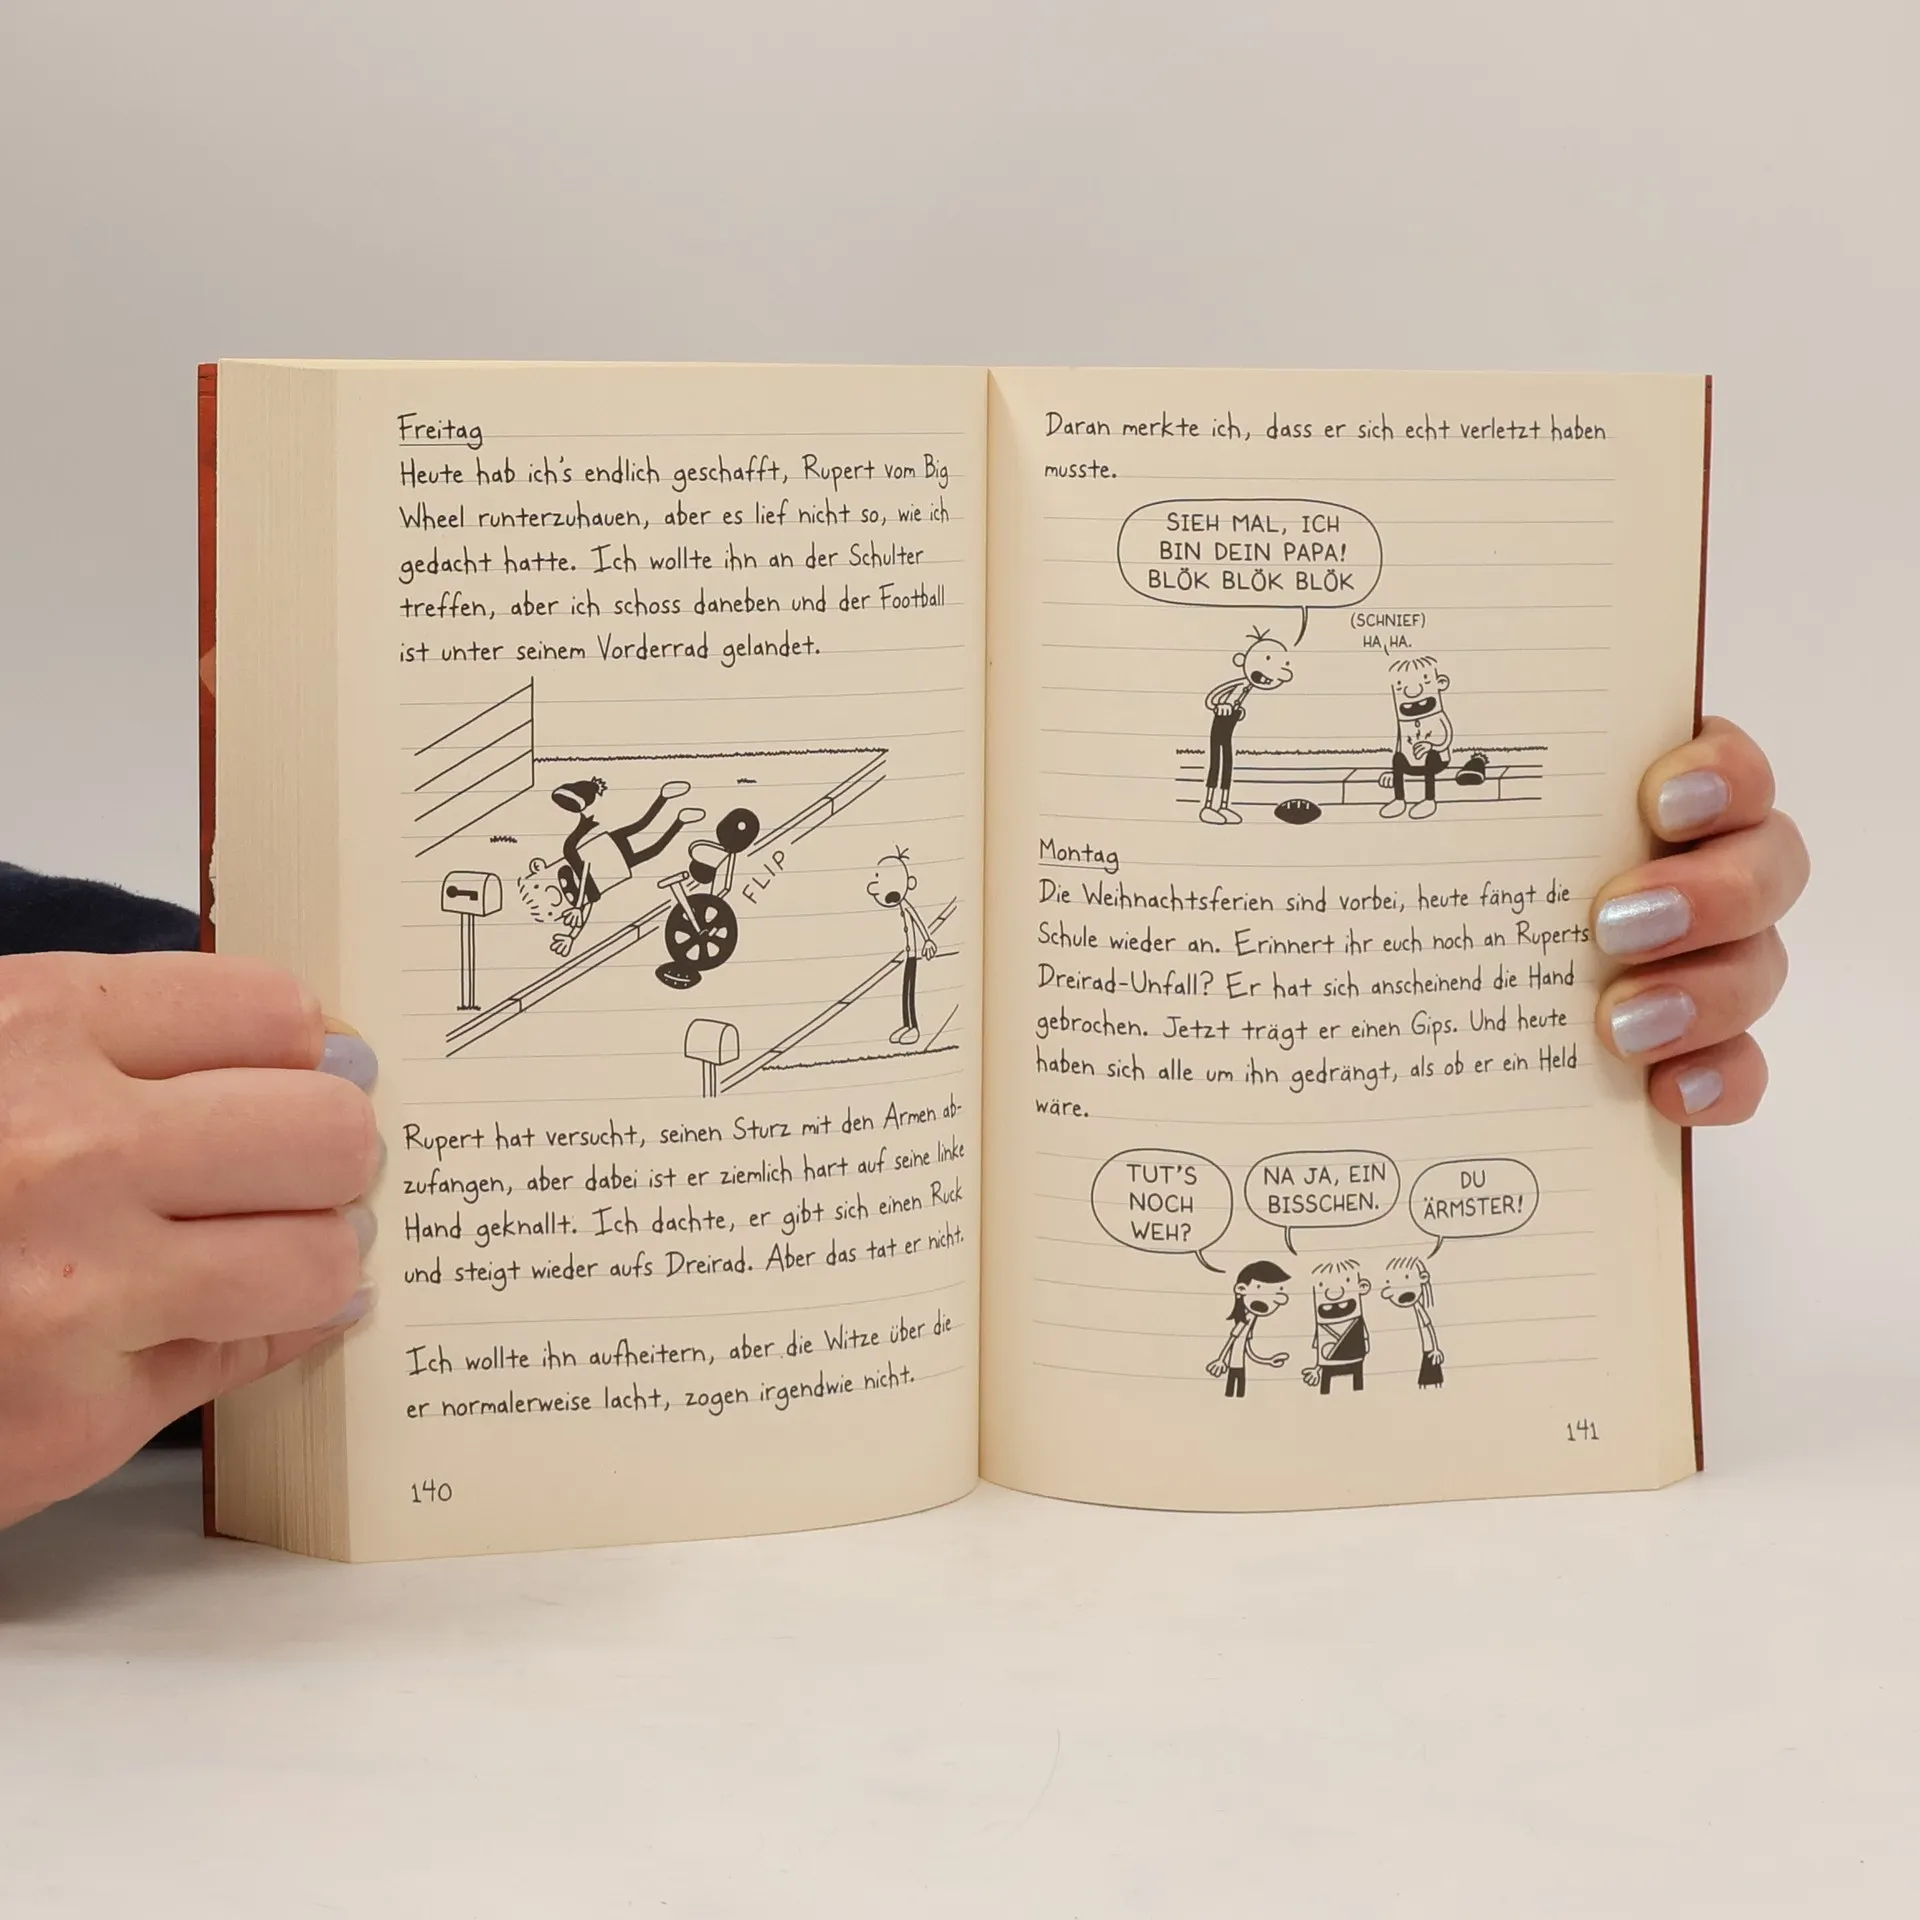 Freitag
Heute hab ich's endlich geschafft, Rupert vom Big
Wheel runterzuhauen, aber es lief nicht so, wie ich
gedacht hatte. Ich wollte ihn an der Schulter
treffen, aber ich schoss daneben und der Football
ist unter seinem Vorderrad gelandet.
FLIP
Rupert hat versucht, seinen Sturz mit den Armen ab-
zufangen, aber dabei ist er ziemlich hart auf seine linke
Hand geknallt. Ich dachte, er gibt sich einen Ruck
und steigt wieder aufs Dreirad. Aber das tat er nicht.
Ich wollte ihn aufheitern, aber die Witze über die
er normalerweise lacht, zogen irgendwie nicht.
140
Daran merkte ich, dass er sich echt verletzt haben
musste.
SIEH MAL, ICH
BIN DEIN PAPA!
BLÖK BLÖK BLÖK
(SCHNIEF)
HA, HA.
Montag
Die Weihnachtsferien sind vorbei, heute fängt die
Schule wieder an. Erinnert ihr euch noch an Ruperts
Dreirad-Unfall? Er hat sich anscheinend die Hand
gebrochen. Jetzt trägt er einen Gips. Und heute
haben sich alle um ihn gedrängt, als ob er ein Held
wäre.
TUT'S
NOCH
WEH?
NA JA, EIN
BISSCHEN.
DU
ÄRMSTER!
141